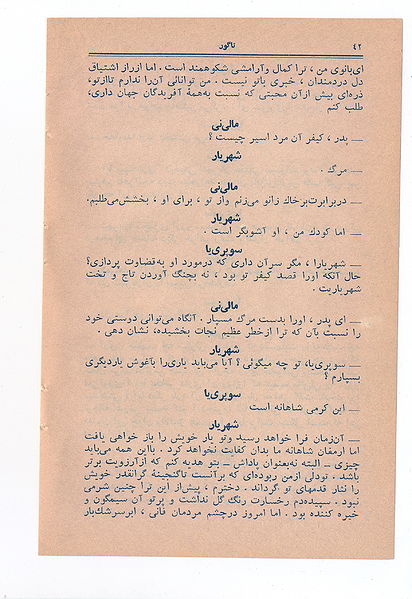 ۴۲
تاگور
ای‌بانوی من ، ترا کمال وآرامشی شکوهمند است . اما ازراز اشتیاق
دل دردمندان ، خبری بانو نیست . من توانائی آن‌را ندارم تاازتو،
ذره‌ای بیش ازآن محبتی که نسبت به‌همهٔ آفریدگان جهان داری،
طلب کنم
مالی‌نی
ــ پدر ، کیفر آن مرد اسیر چیست ؟
شهریار
ــ مرگ .
مالی‌نی
ــ دربرابرت‌برخاك زانو می‌زنم واز تو ، برای او ، بخشش‌می‌طلبم.
شهریار
ــ اما کودك من ، او آشوبگر است .
سوپری‌یا
ــ شهریارا ، مگر سرآن داری که درمورد او به‌قضاوت پردازی؟
حال آنکه اورا قصد کیفر تو بود ، نه بچنگ آوردن تاج و تخت
شهریاریت .
مالی‌نی
ــ ای پدر ، اورا بدست مرگ مسپار . آنگاه می‌توانی دوستی خود
را نسبت بآن که ترا ازخطر عظیم نجات بخشیده، نشان دهی .
شهریار
ــ سوپری‌یا، تو چه میگوئی ؟ آیا می‌باید یاری‌را بآغوش یاردیگری
بسپارم ؟
سوپری‌یا
ــ این کرمی شاهانه است
شهریار
ــ آن‌زمان فرا خواهد رسید وتو یار خویش را باز خواهی یافت
اما ارمغان شاهانه ما بدان کفایت نخواهد کرد . بااین همه می‌باید
چیزی ــ البته نه‌بعنوان پاداش ــ بتو هدیه کنم که ازآرزویت برتر
باشد . تودلی ازمن ربوده‌ای که برآنست تاگنجینهٔ گرانقدر خویش
را نثار قدمهای تو گرداند . دخترم ، پیش‌از این ترا چنین شرمی
نبود . سپیده‌دم رخسارت رنگ گل نداشت و پرتو آن سیمگون و
خیره کننده بود . اما امروز درچشم مردمان فانی ، ابرسرشك‌بار